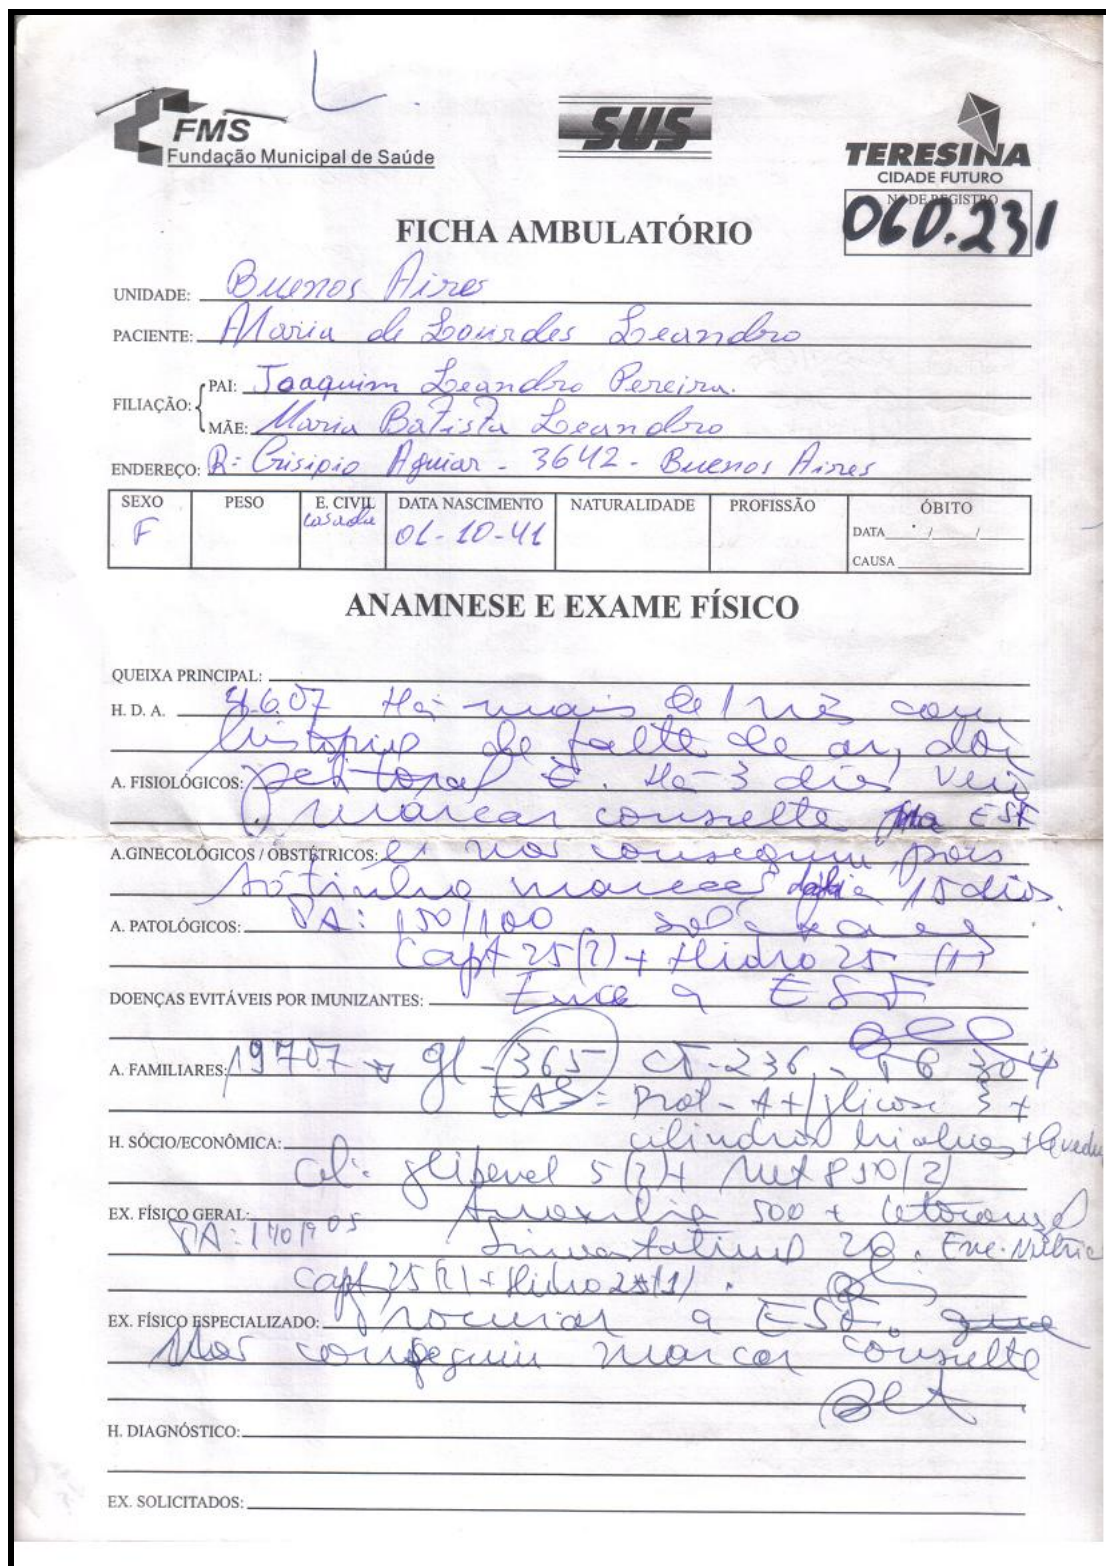 FMS
Fundação Municipal de Saúde
SUS
TERESINA
CIDADE FUTURO
Nº DE REGISTRO
060.231
FICHA AMBULATÓRIO
UNIDADE: Buenos Aires
PACIENTE: Maria de Lourdes Leandro
FILIAÇÃO:
PAI: Joaquim Leandro Pereira.
MÃE: Maria Batista Leandro
ENDEREÇO: R: Crisipio Aguiar - 3642 - Buenos Aires
SEXO PESO E. CIVIL DATA NASCIMENTO NATURALIDADE PROFISSÃO ÓBITO
F casada 01-10-41
DATA / /
CAUSA
ANAMNESE E EXAME FÍSICO
QUEIXA PRINCIPAL:
H. D. A. 6.07 Há mais de 1 mês com
história de falta de ar, dor
A. FISIOLÓGICOS: peitoral E. Há 3 dias veio
marcar consulta ESF
A.GINECOLÓGICOS / OBSTÉTRICOS: e não conseguiu pois
só tinha 15 dias.
A. PATOLÓGICOS: PA: 150/100
Capt 25(2) + Hidro 25 (1)
DOENÇAS EVITÁVEIS POR IMUNIZANTES: a ESF
A. FAMILIARES: 19707 gl - 365 CT-236 - TG 304
EAS = Prot - ++/glicose 3+
H. SÓCIO/ECONÔMICA: cilindros hialinos +
5(2)+ Met 850(2)
EX. FÍSICO GERAL: 500 +
PA: Sinvastatina 20.
Capt 25(2) + Hidro 25(1).
EX. FÍSICO ESPECIALIZADO: Procurar a ESF.
Não conseguiu marcar consulta
H. DIAGNÓSTICO:
EX. SOLICITADOS: